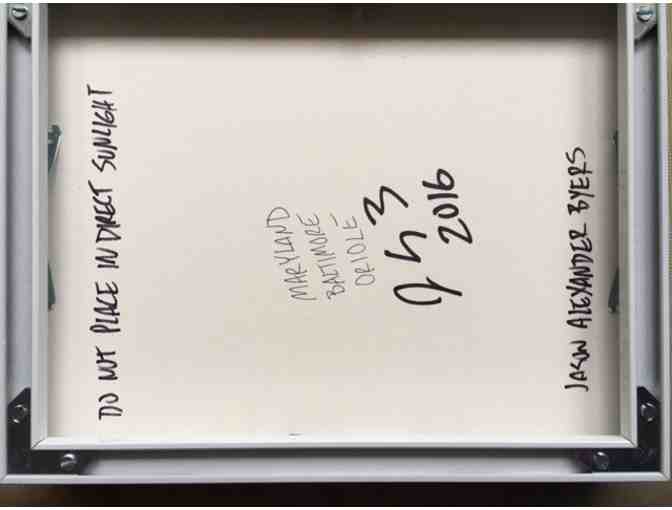 DO NOT PLACE IN DIRECT SUNLIGHT
MARYLAND
BALTIMORE
ORIOLE
2016
JASON ALEXANDER BYERS